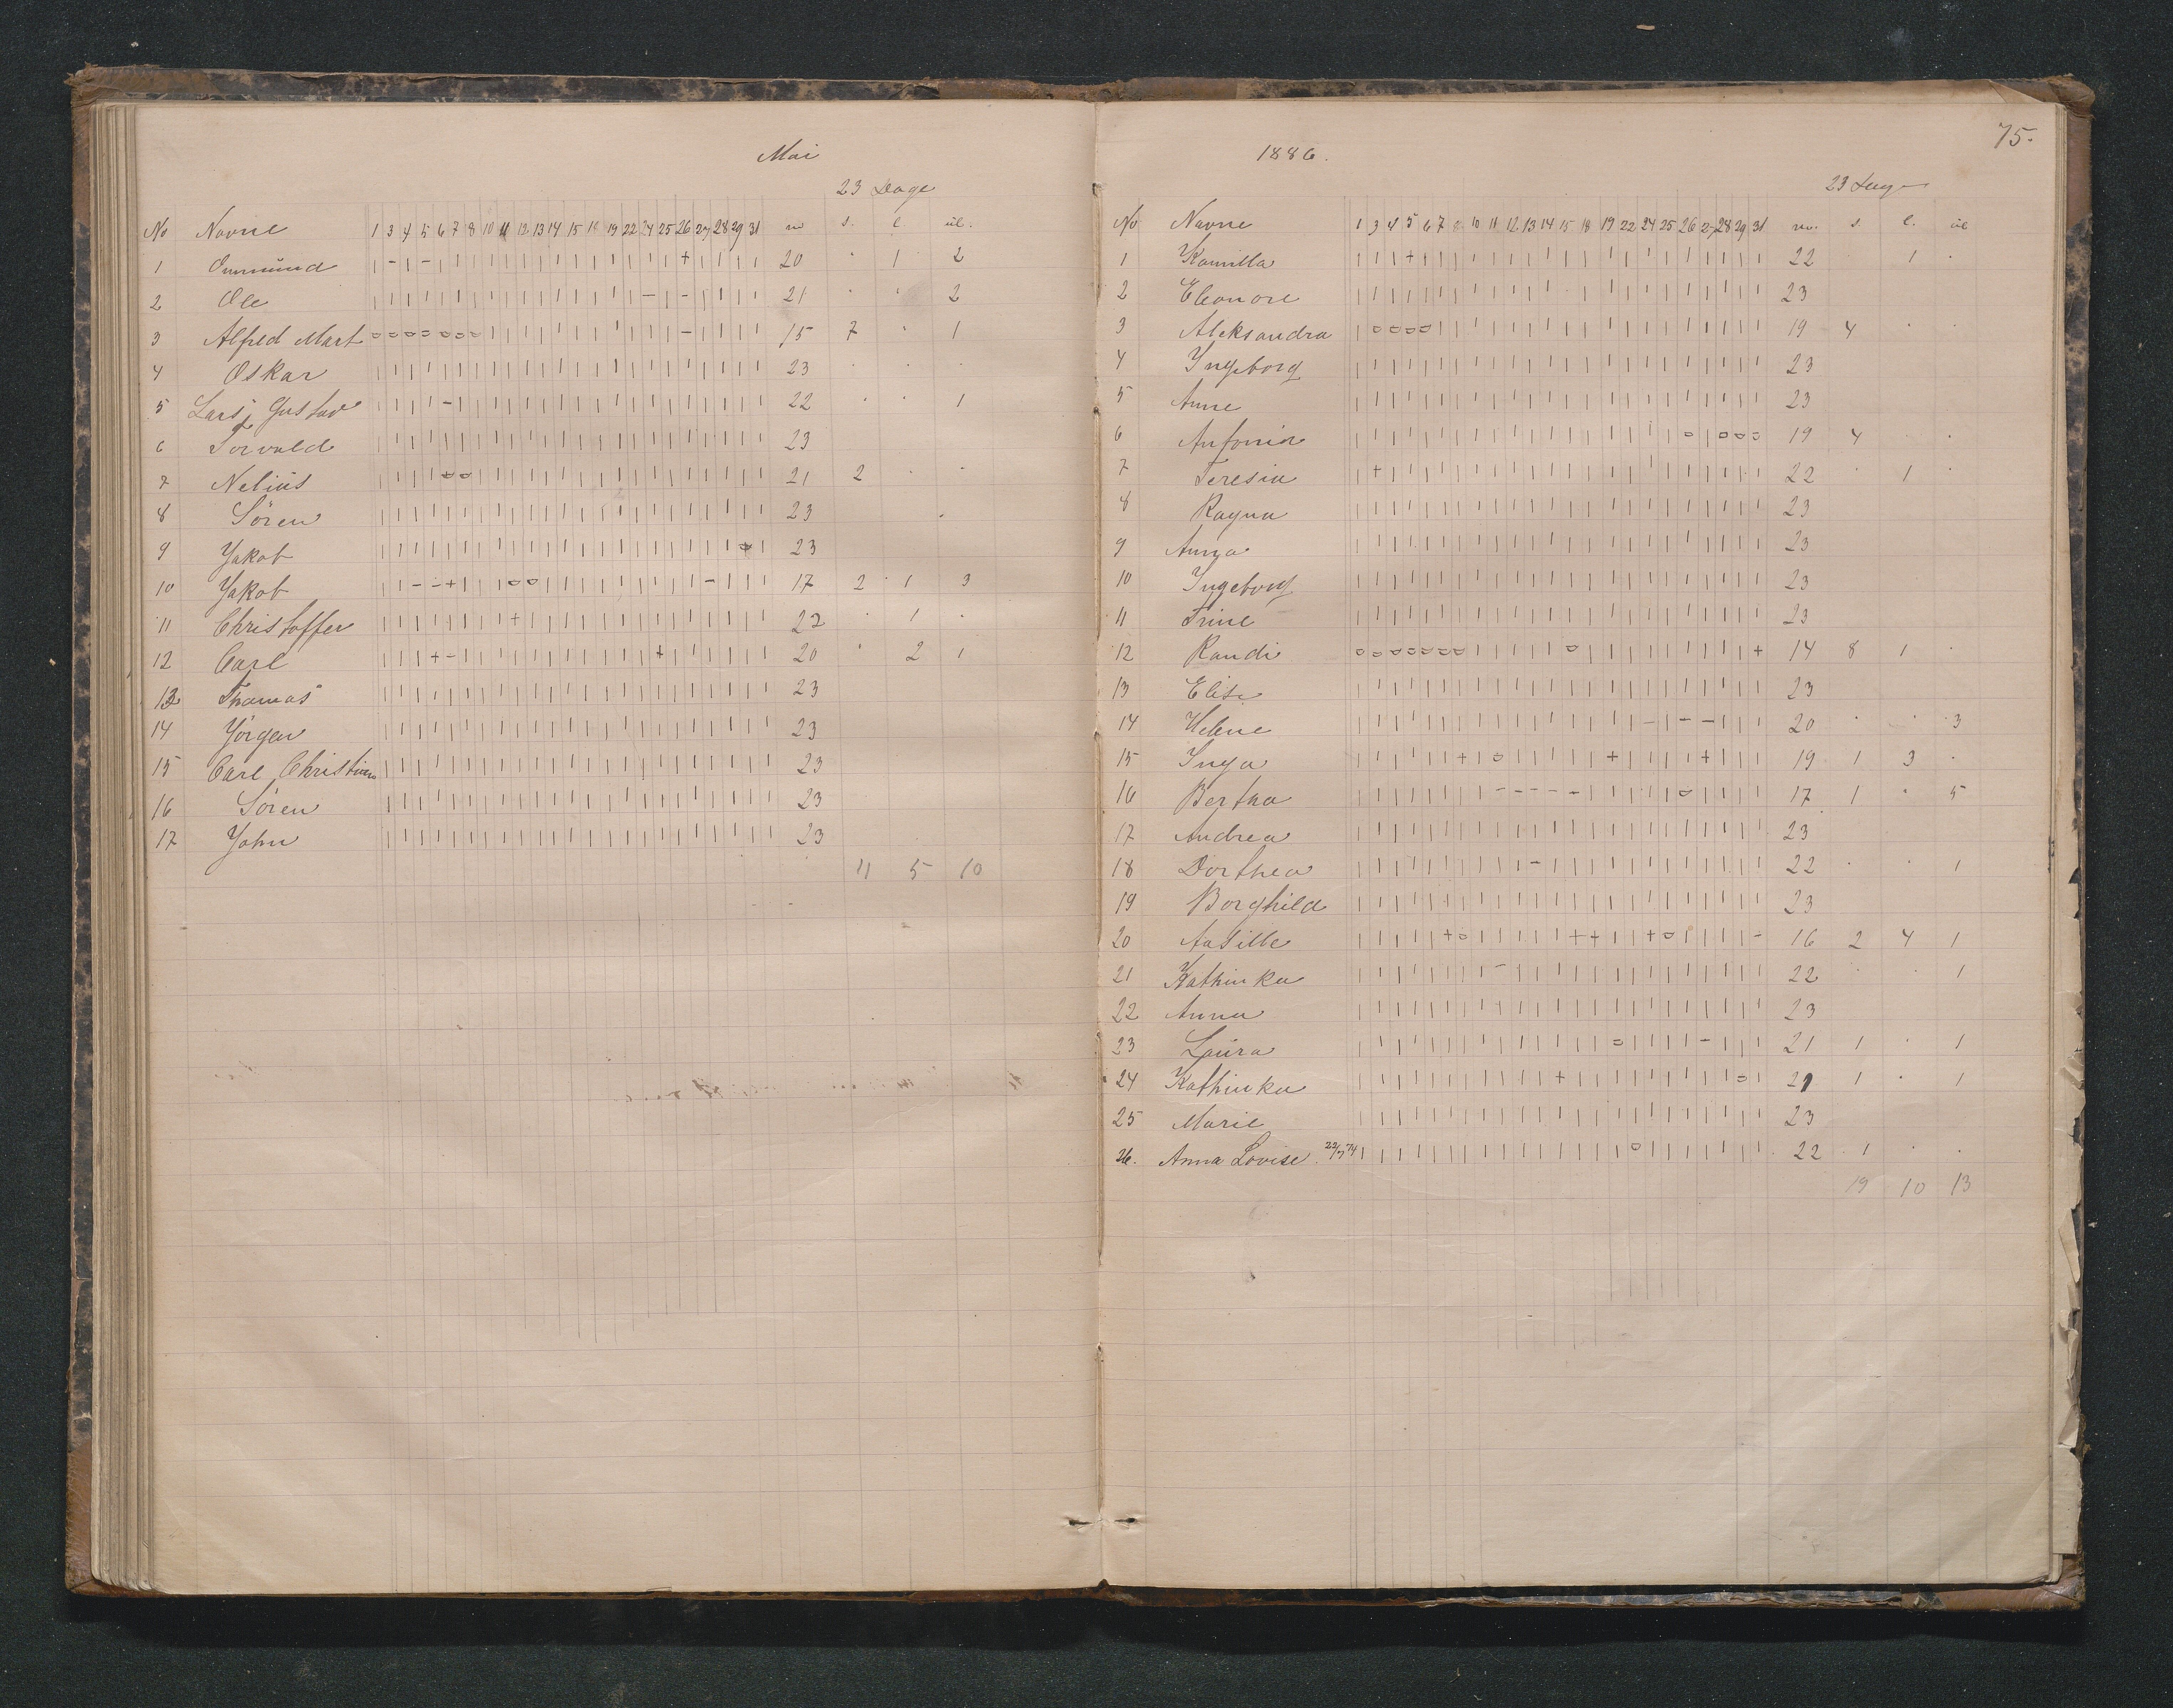 Mai
23 Dage
No Navne 1 3 4 5 6 7 8 10 11 12 13 14 15 18 19 22 24 25 26 27 28 29 31 m s. l ul.
1 Ommund | - | - | | | | | | | | | | | | | | + | | | | 20 · 1 2
2 Ole | | | | | | | | | | | | | | | | - | - | | | | 21 · · 2
3 Alfred Mart o o o o o o o | | | | | | | | | | | - | | | | 15 7 · 1
4 Oskar | | | | | | | | | | | | | | | | | | | | | | | 23 · · ·
5 Lars Gustav | | | | - | | | | | | | | | | | | | | | | | | 22 · · 1
6 Torvald | | | | | | | | | | | | | | | | | | | | | | | 23
7 Nelius | | | | o o | | | | | | | | | | | | | | | | | 21 2 · ·
8 Sören | | | | | | | | | | | | | | | | | | | | | | | 23 ·
9 Yakob | | | | | | | | | | | | | | | | | | | | | + | 23
10 Yakob | | - - + | | o o | | | | | | | | | - | | | 17 2 1 3
11 Christoffer | | | | | | | + | | | | | | | | | | | | | | | 22 · 1 ·
12 Carl | | | + - | | | | | | | | | | | + | | | | | | 20 · 2 1
13 Thomas | | | | | | | | | | | | | | | | | | | | | | | 23
14 Yörgen | | | | | | | | | | | | | | | | | | | | | | | 23
15 Carl Christian | | | | | | | | | | | | | | | | | | | | | | | 23
16 Sören | | | | | | | | | | | | | | | | | | | | | | | 23
17 Yohn | | | | | | | | | | | | | | | | | | | | | | | 23
11 5 10
1886.
75.
23 Dage
No Navne 1 3 4 5 6 7 8 10 11 12 13 14 15 18 19 22 24 25 26 27 28 29 31 m. s. l. ul
1 Kamilla | | | + | | | | | | | | | | | | | | | | | | | 22 · 1 ·
2 Eleonore | | | | | | | | | | | | | | | | | | | | | | | 23
3 Aleksandra | o o o o | | | | | | | | | | | | | | | | | | 19 4 · ·
4 Yngeborg | | | | | | | | | | | | | | | | | | | | | | | 23
5 Anne | | | | | | | | | | | | | | | | | | | | | | | 23
6 Antonia | | | | | | | | | | | | | | | | | | o | o o o 19 4 ·
7 Teresia | + | | | | | | | | | | | | | | | | | | | | | 22 · 1 ·
8 Ragna | | | | | | | | | | | | | | | | | | | | | | | 23
9 Anna | | | | | | | | | | | | | | | | | | | | | | | 23
10 Yngeborg | | | | | | | | | | | | | | | | | | | | | | | 23
11 Trine | | | | | | | | | | | | | | | | | | | | | | | 23
12 Randi o o o o o o o | | | | | o | | | | | | | | | + 14 8 1 ·
13 Elise | | | | | | | | | | | | | | | | | | | | | | | 23
14 Helene | | | | | | | | | | | | | | | | - | - - | | | 20 · · 3
15 Inga | | | | | | + | o | | | | | + | | | | + | | | 19 1 3 ·
16 Bertha | | | | | | | | - - - - - | | | | | o | | | | 17 1 · 5
17 Andrea | | | | | | | | | | | | | | | | | | | | | | | 23
18 Dorthea | | | | | | | | | | - | | | | | | | | | | | | 22 · · 1
19 Borghild | | | | | | | | | | | | | | | | | | | | | | | 23
20 Aasille | | | | | + o | | | | | + + | | + o | | | | - 16 2 4 1
21 Kathinka | | | | | | | | - | | | | | | | | | | | | | | 22 · · 1
22 Anna | | | | | | | | | | | | | | | | | | | | | | | 23
23 Laura | | | | | | | | | | | | | | o | | | | - | | | 21 1 · 1
24 Kathinka | | | | | | | | | | | + | | | | | | | | | o | 21 1 · 1
25 Marie | | | | | | | | | | | | | | | | | | | | | | | 23
26. Anna Lovise. 22/7 74 | | | | | | | | | | | | | | | o | | | | | | | 22 1 · ·
19 10 13